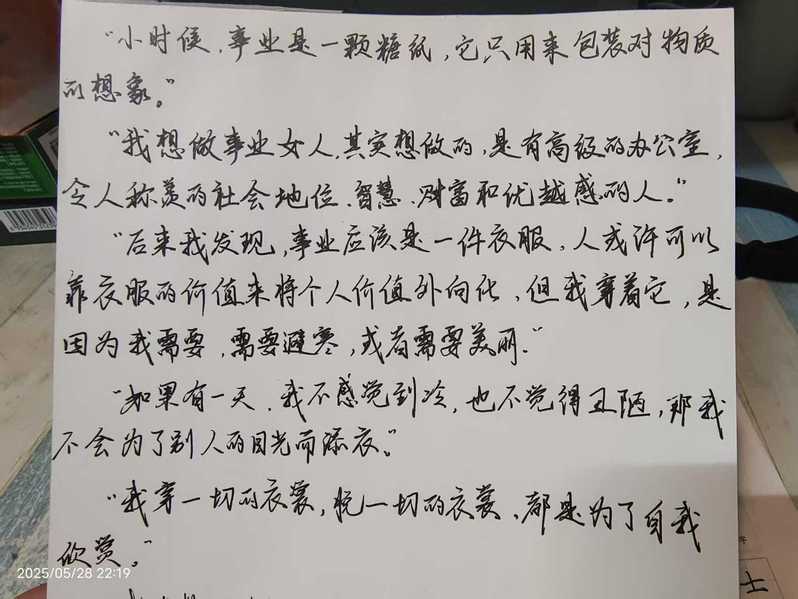 “小时候，事业是一颗糖纸，它只用来包装对物质
的想象。”
“我想做事业女人，其实想做的，是有高级的办公室，
令人称羡的社会地位、智慧、财富和优越感的人。”
“后来我发现，事业应该是一件衣服，人或许可以
靠衣服的价值来将个人价值外向化，但我穿着它，是
因为我需要，需要避寒，或者需要美丽。”
“如果有一天，我不感觉到冷，也不觉得丑陋，那我
不会为了别人的目光而添衣。”
“我穿一切的衣裳，脱一切的衣裳，都是为了自我
欣赏。”
2025/05/28 22:19
士